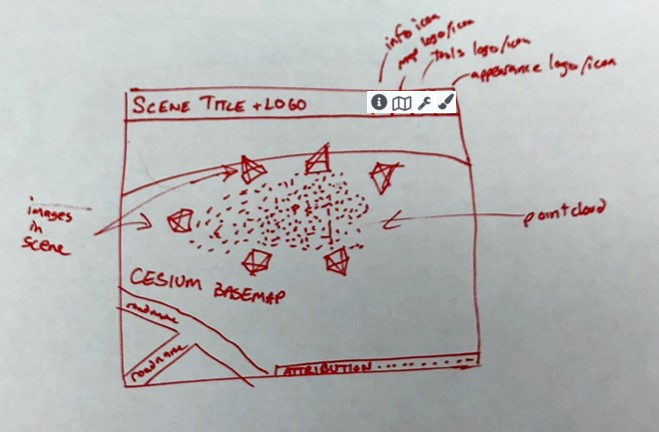 info icon
map logo/icon
tools logo/icon
appearance logo/icon
SCENE TITLE + LOGO
images
in
scene
pointcloud
CESIUM BASEMAP
roadname
roadname
ATTRIBUTION